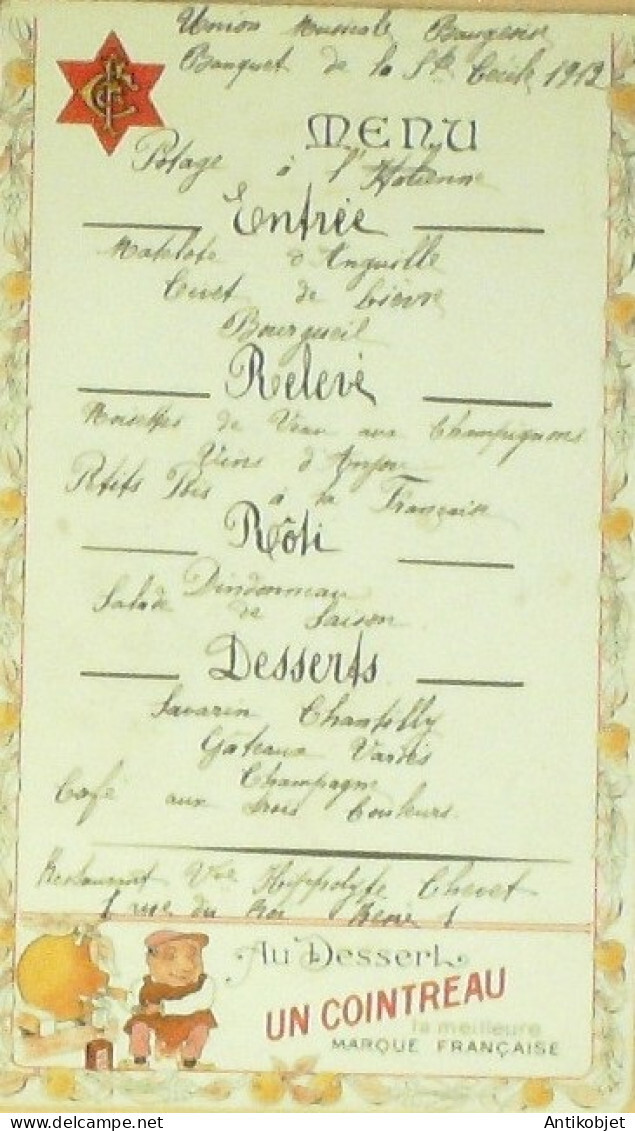 Union Musicale Baugeoise
Banquet de la Ste Cécile 1912
MENU
Potage à l'Italienne
Entrée
Matelote d'Anguille
Civet de Lièvre
Bourgueil
Relevé
Noisettes de Veau aux Champignons
Vins d'Anjou
Petits Pois à la Française
Rôti
Dindonneau
Salade de Saison
Desserts
Savarin Chantilly
Gâteaux Variés
Champagne
Café aux trois Couleurs
Restaurant Vve Hippolyte Chevet
1 rue du Roi René 1
Au Dessert
UN COINTREAU
la meilleure
MARQUE FRANÇAISE
Antikobjet